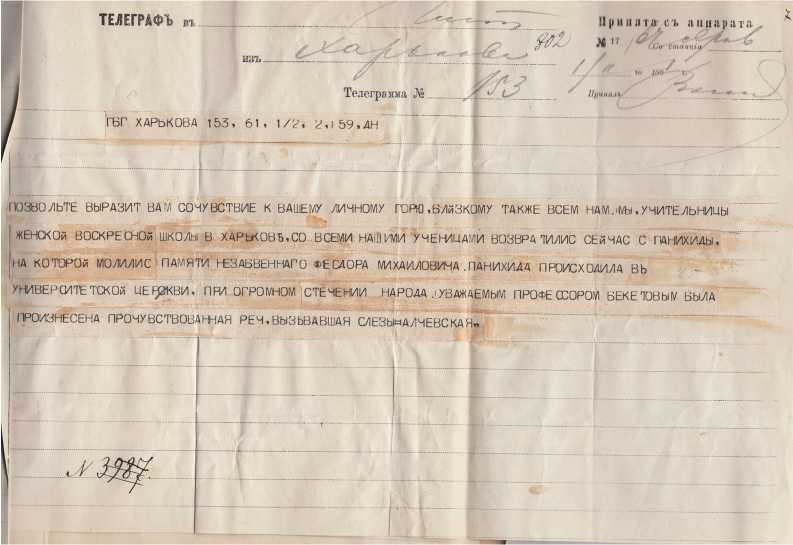 ТЕЛЕГРАФЪ въ
Принята съ аппарата
№ 17
Со станціи
изъ Харькова 302
1/II
Телеграмма № 153
Принялъ
ГБГ ХАРЬКОВА 153, 61, 1/2, 2,159,ДН
ПОЗВОЛЬТЕ ВЫРАЗИТ ВАМ СОЧУВСТВИЕ К ВАШЕМУ ЛИЧНОМУ ГОРЮ,БЛИЗКОМУ ТАКЖЕ ВСЕМ НАМ.МЫ,УЧИТЕЛЬНИЦЫ
ЖЕНСКОЙ ВОСКРЕСНОЙ ШКОЛЫ В ХАРЬКОВѢ,СО ВСЕМИ НАШИМИ УЧЕНИЦАМИ ВОЗВРАТИЛИС СЕЙЧАС С ПАНИХИДЫ,
НА КОТОРОЙ МОЛИЛИС ПАМЯТИ НЕЗАБВЕННАГО ФЕОДОРА МИХАИЛОВИЧА.ПАНИХИДА ПРОИСХОДИЛА ВЪ
УНИВЕРСИТЕТСКОЙ ЦЕРКВИ,ПРИ ОГРОМНОМ СТЕЧЕНИИ НАРОДА.УВАЖАЕМЫМ ПРОФЕССОРОМ БЕКЕТОВЫМ БЫЛА
ПРОИЗНЕСЕНА ПРОЧУВСТВОВАННАЯ РЕЧ,ВЫЗЫВАВШАЯ СЛЕЗЫ=АЛЧЕВСКАЯ..
N 3987.